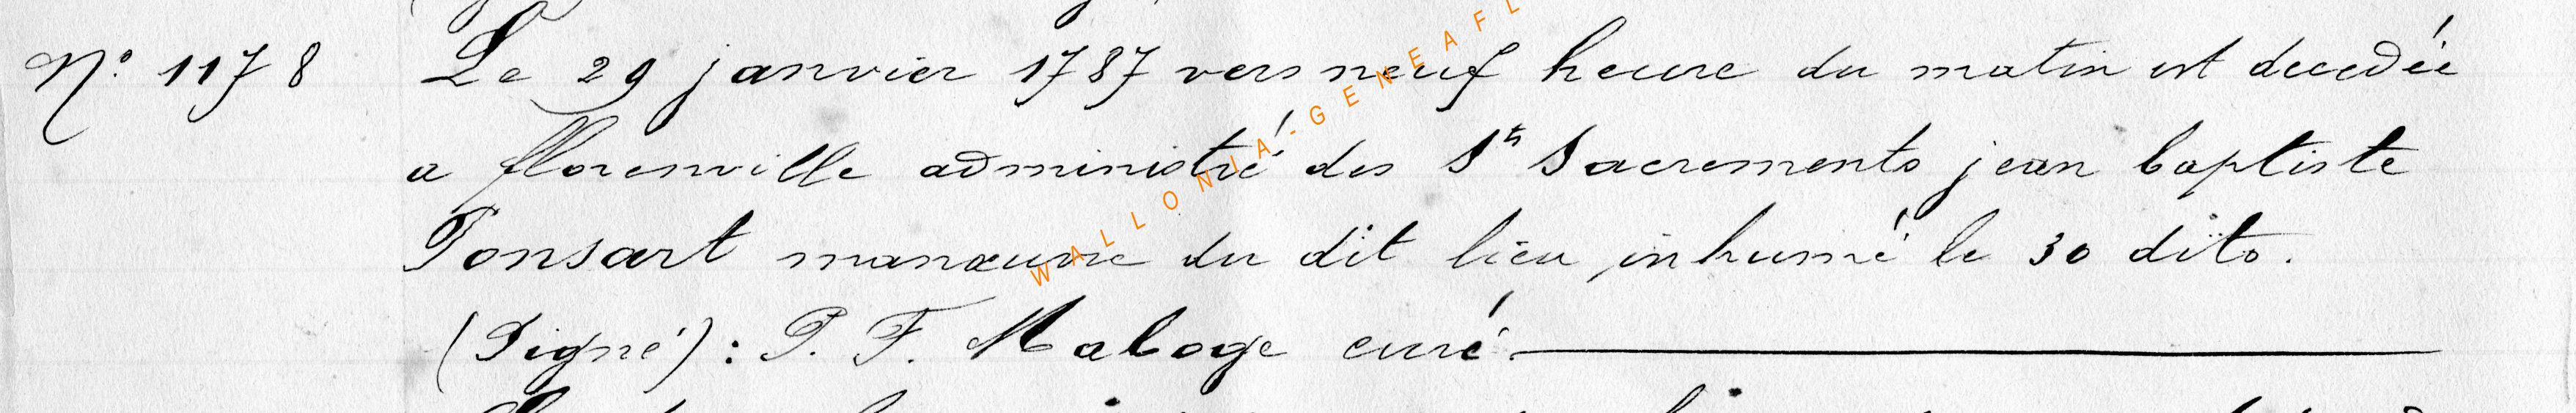 N° 1178 Le 29 janvier 1787 vers neuf heure du matin est decedée
a florenville administré des Sts Sacrements jean baptiste
Ponsart manœuvre du dit lieu, inhumé le 30 dito.
(Signé) : P. F. Maloge curé.
WALLONIA-GENEAFL